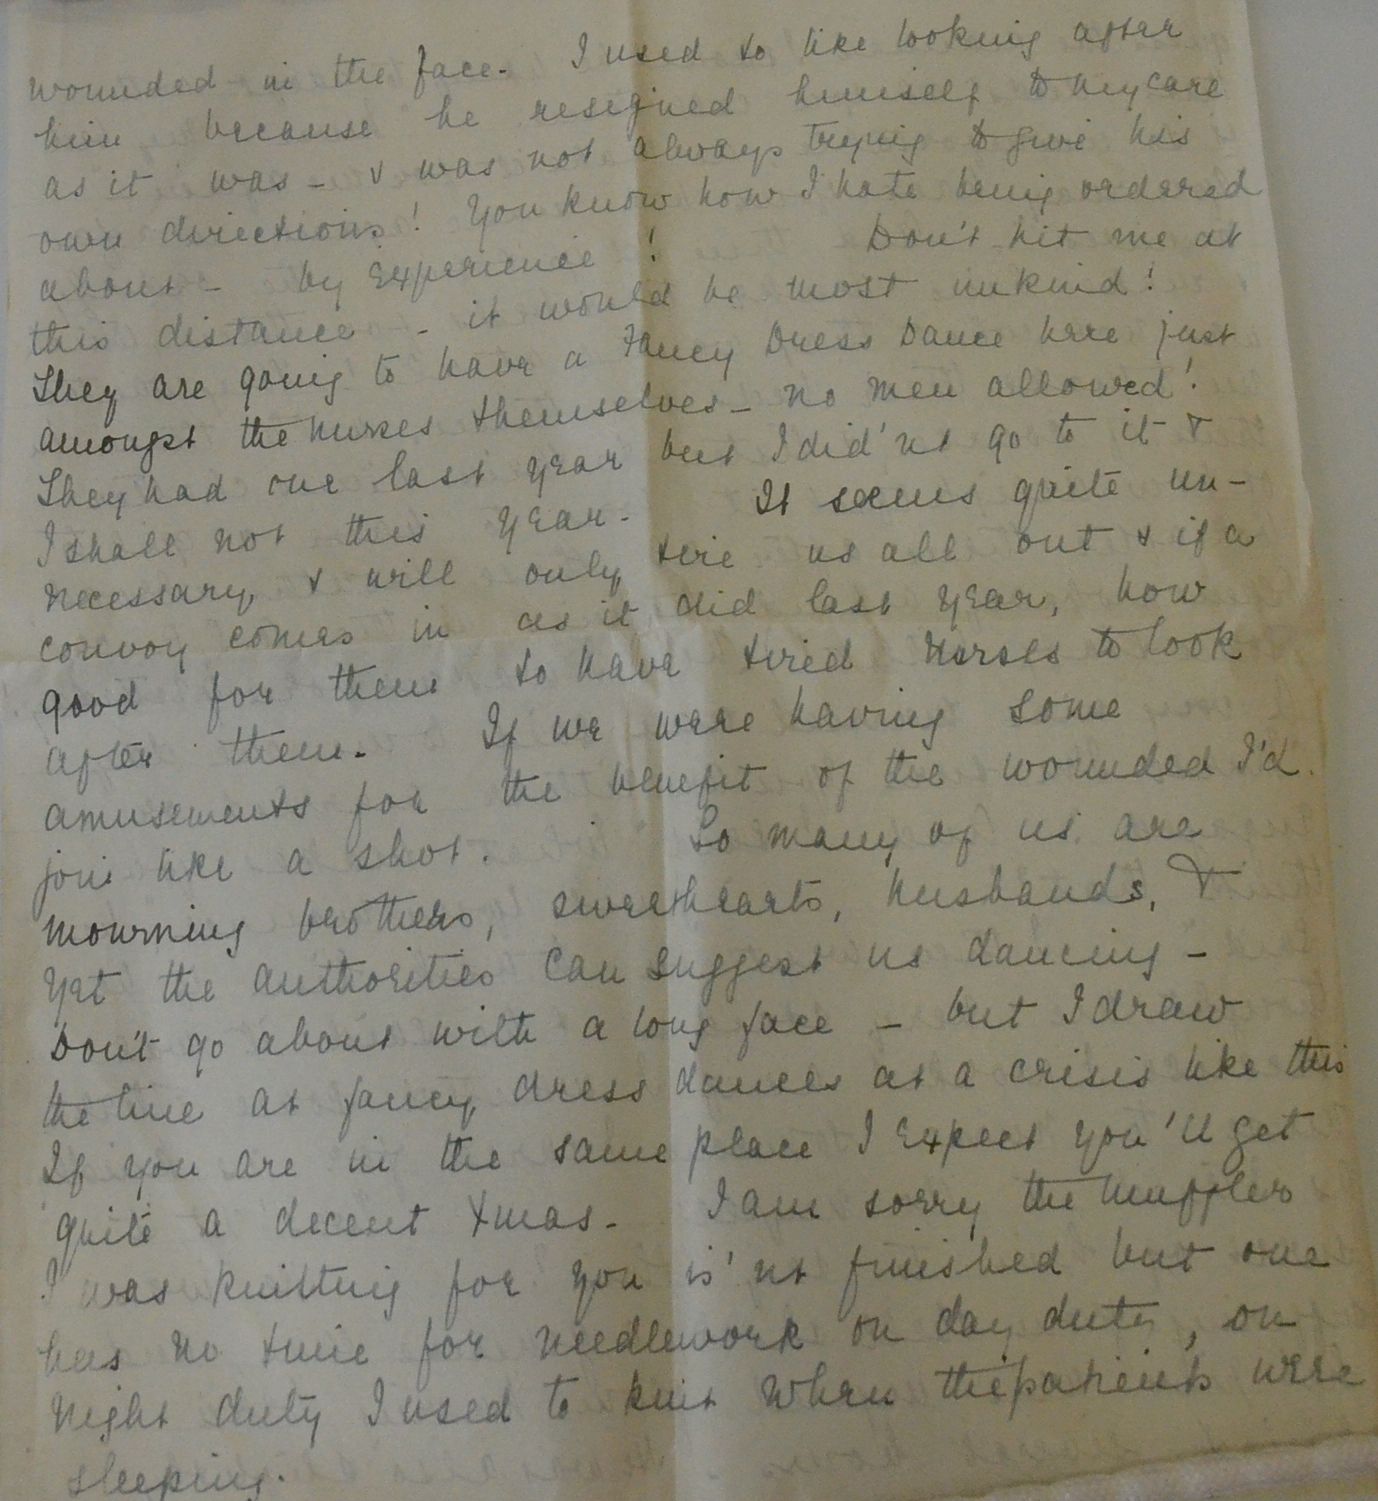 wounded in the face. I used to like looking after
him because he resigned himself to my care
as it was - & was not always trying to give his
own directions! You know how I hate being ordered
about - by experience! Don't hit me at
this distance - it would be most unkind!
They are going to have a Fancy Dress Dance here just
amongst the nurses themselves - no men allowed!
They had one last year but I did'nt go to it &
I shall not this year. It seems quite un-
necessary, & will only tire us all out & if a
convoy comes in as it did last year, how
good for them to have tired nurses to look
after them. If we were having some
amusements for the benefit of the wounded I'd
join like a shot. So many of us are
mourning brothers, sweethearts, husbands, &
yet the authorities can suggest us dancing -
Don't go about with a long face - but I draw
the line at fancy dress dances at a crisis like this
If you are in the same place I expect you'll get
quite a decent Xmas. I am sorry the muffler
I was knitting for you is'nt finished but one
has no time for needlework on day duty, on
night duty I used to knit when the patients were
sleeping.